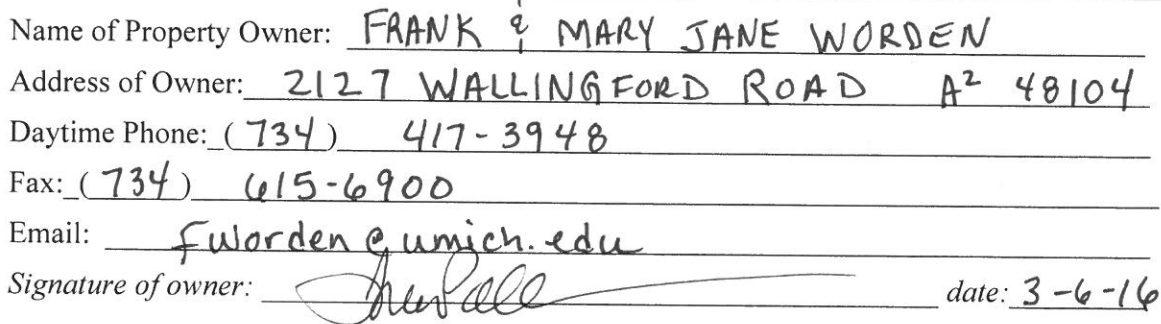 Name of Property Owner: FRANK & MARY JANE WORDEN
Address of Owner: 2127 WALLINGFORD ROAD A² 48104
Daytime Phone: (734) 417-3948
Fax: (734) 615-6900
Email: fworden@umich.edu
Signature of owner: date: 3-6-16